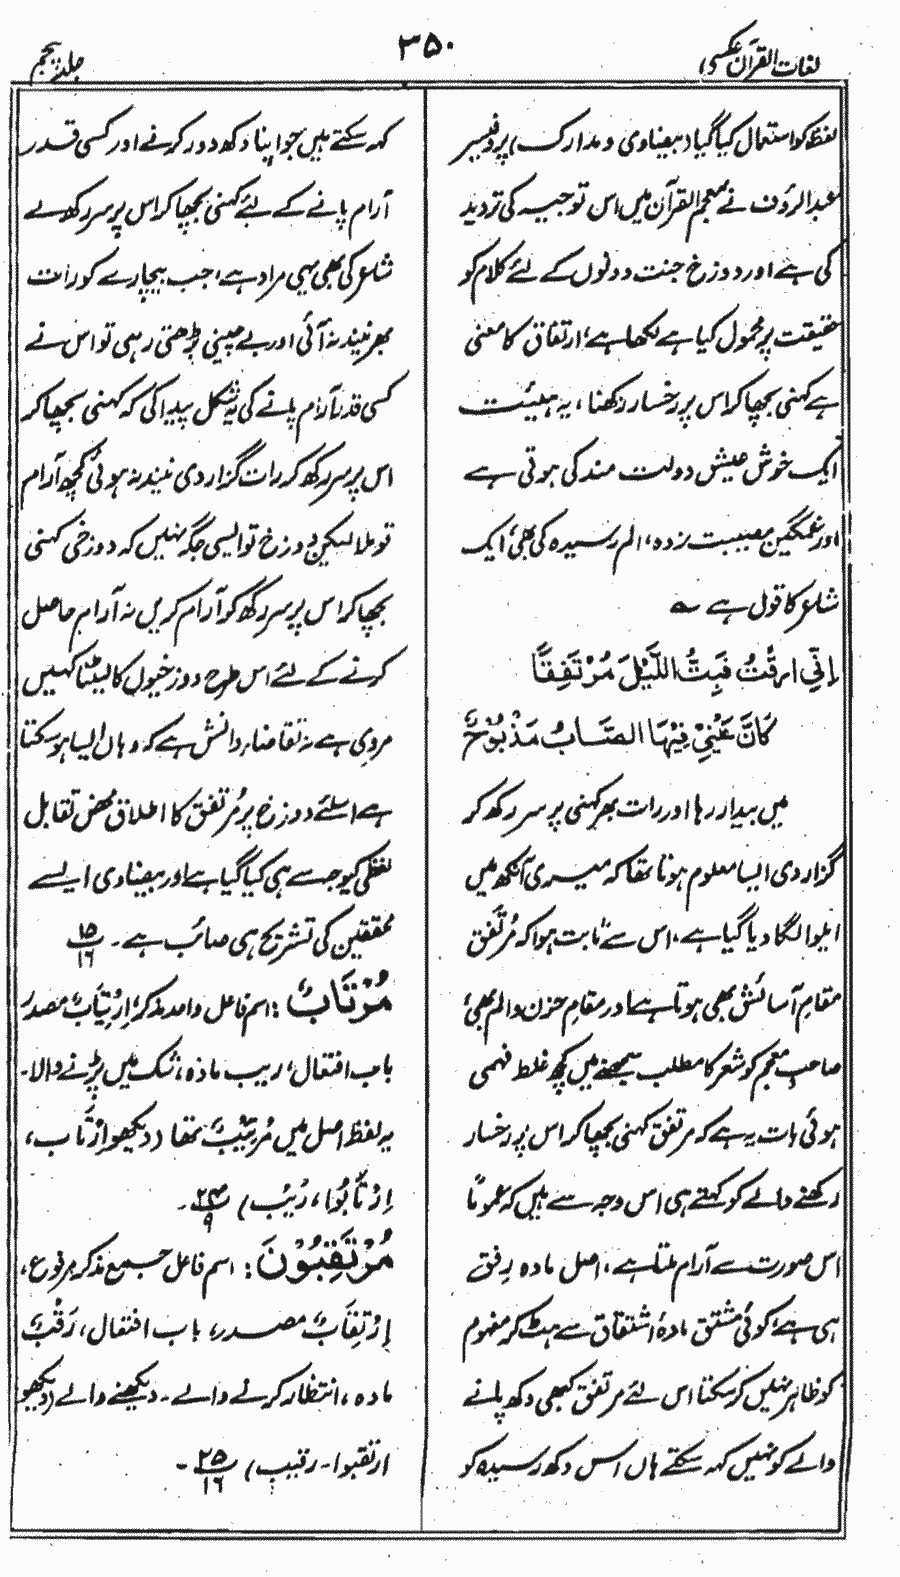 لغات القرآن عکسی
۳۵۰
جلد پنجم
لفظ کو استعمال کیا گیا (بیضاوی و مدارک) پروفیسر
عبدالرؤف نے معجم القرآن میں اس توجیہ کی تردید
کی ہے اور دوزخ جنت دونوں کے لئے کلام کو
حقیقت پر محمول کیا ہے لکھا ہے، ارتفاق کا معنی
ہے کہنی بچھا کر اس پر رخسار رکھنا، یہ ہیئت
ایک خوش عیش دولت مند کی ہوتی ہے
اور غمگین مصیبت زدہ، الم رسیدہ کی بھی، ایک
شاعر کا قول ہے ؎
اِنِّی ارِقْتُ فَبِتُّ اللَّیْلَ مُرْتَفِقًا
کَاَنَّ عَیْنِیْ فِیْهَا الصَّابُ مَذْبُوْحٌ
میں بیدار رہا اور رات بھر کہنی پر سر رکھ کر
گزار دی ایسا معلوم ہوتا تھا کہ میری آنکھ میں
ایلوا لگا دیا گیا ہے، اس سے ثابت ہوا کہ مُرتَفَق
مقامِ آسائش بھی ہوتا ہے اور مقامِ حزن والم بھی،
صاحبِ معجم کو شعر کا مطلب سمجھنے میں کچھ غلط فہمی
ہوئی بات یہ ہے کہ مرتفق کہنی بچھا کر اس پر رخسار
رکھنے والے کو کہتے ہی اس وجہ سے ہیں کہ عموماً
اس صورت سے آرام ملتا ہے، اصل مادہ رِفق
ہی ہے، کوئی مشتق مادۂ اشتقاق سے ہٹ کر مفہوم
کو ظاہر نہیں کر سکتا اس لئے مرتفق کبھی دکھ پانے
والے کو نہیں کہہ سکتے ہاں اس دکھ رسیدہ کو
کہہ سکتے ہیں جو اپنا دکھ دور کرنے اور کسی قدر
آرام پانے کے لئے کہنی بچھا کر اس پر سر رکھ لے
شاعر کی بھی یہی مراد ہے، جب بیچارے کو رات
بھر نیند نہ آئی اور بے چینی بڑھتی رہی تو اس نے
کسی قدر آرام پانے کی یہ شکل پیدا کی کہ کہنی بچھا کر
اس پر سر رکھ کر رات گزار دی نیند نہ ہوئی کچھ آرام
تو ملا لیکن دوزخ تو ایسی جگہ نہیں کہ دوزخی کہنی
بچھا کر اس پر سر رکھ کر آرام کریں نہ آرام حاصل
کرنے کے لئے اس طرح دوزخیوں کا لیٹنا کہیں
مروی ہے نہ تقاضاء دانش ہے کہ وہاں ایسا ہو سکتا
ہے اسلئے دوزخ پر مُرتفق کا اطلاق محض تقابل
لفظی کیوجہ سے ہی کیا گیا ہے اور بیضاوی ایسے
محققین کی تشریح ہی صائب ہے۔ ۱۵/۱۶
مُرْتَابٌ: اسم فاعل واحد مذکر، اِرْتِیَابٌ مصدر
باب افتعال، ریب مادہ، شک میں پڑنے والا۔
یہ لفظ اصل میں مُرْتَیِبٌ تھا (دیکھو اِرْتَاب،
اِرْتَابُوا، رَیْب) ۲۴/۹ ۔
مُرْتَقِبُوْنَ: اسم فاعل جمع مذکر مرفوع،
اِرْتِقَابٌ مصدر، باب افتعال، رَقْبٌ
مادہ، انتظار کرنے والے۔ دیکھنے والے (دیکھو
ارتقبوا۔ رقیب) ۲۵/۱۶ ۔